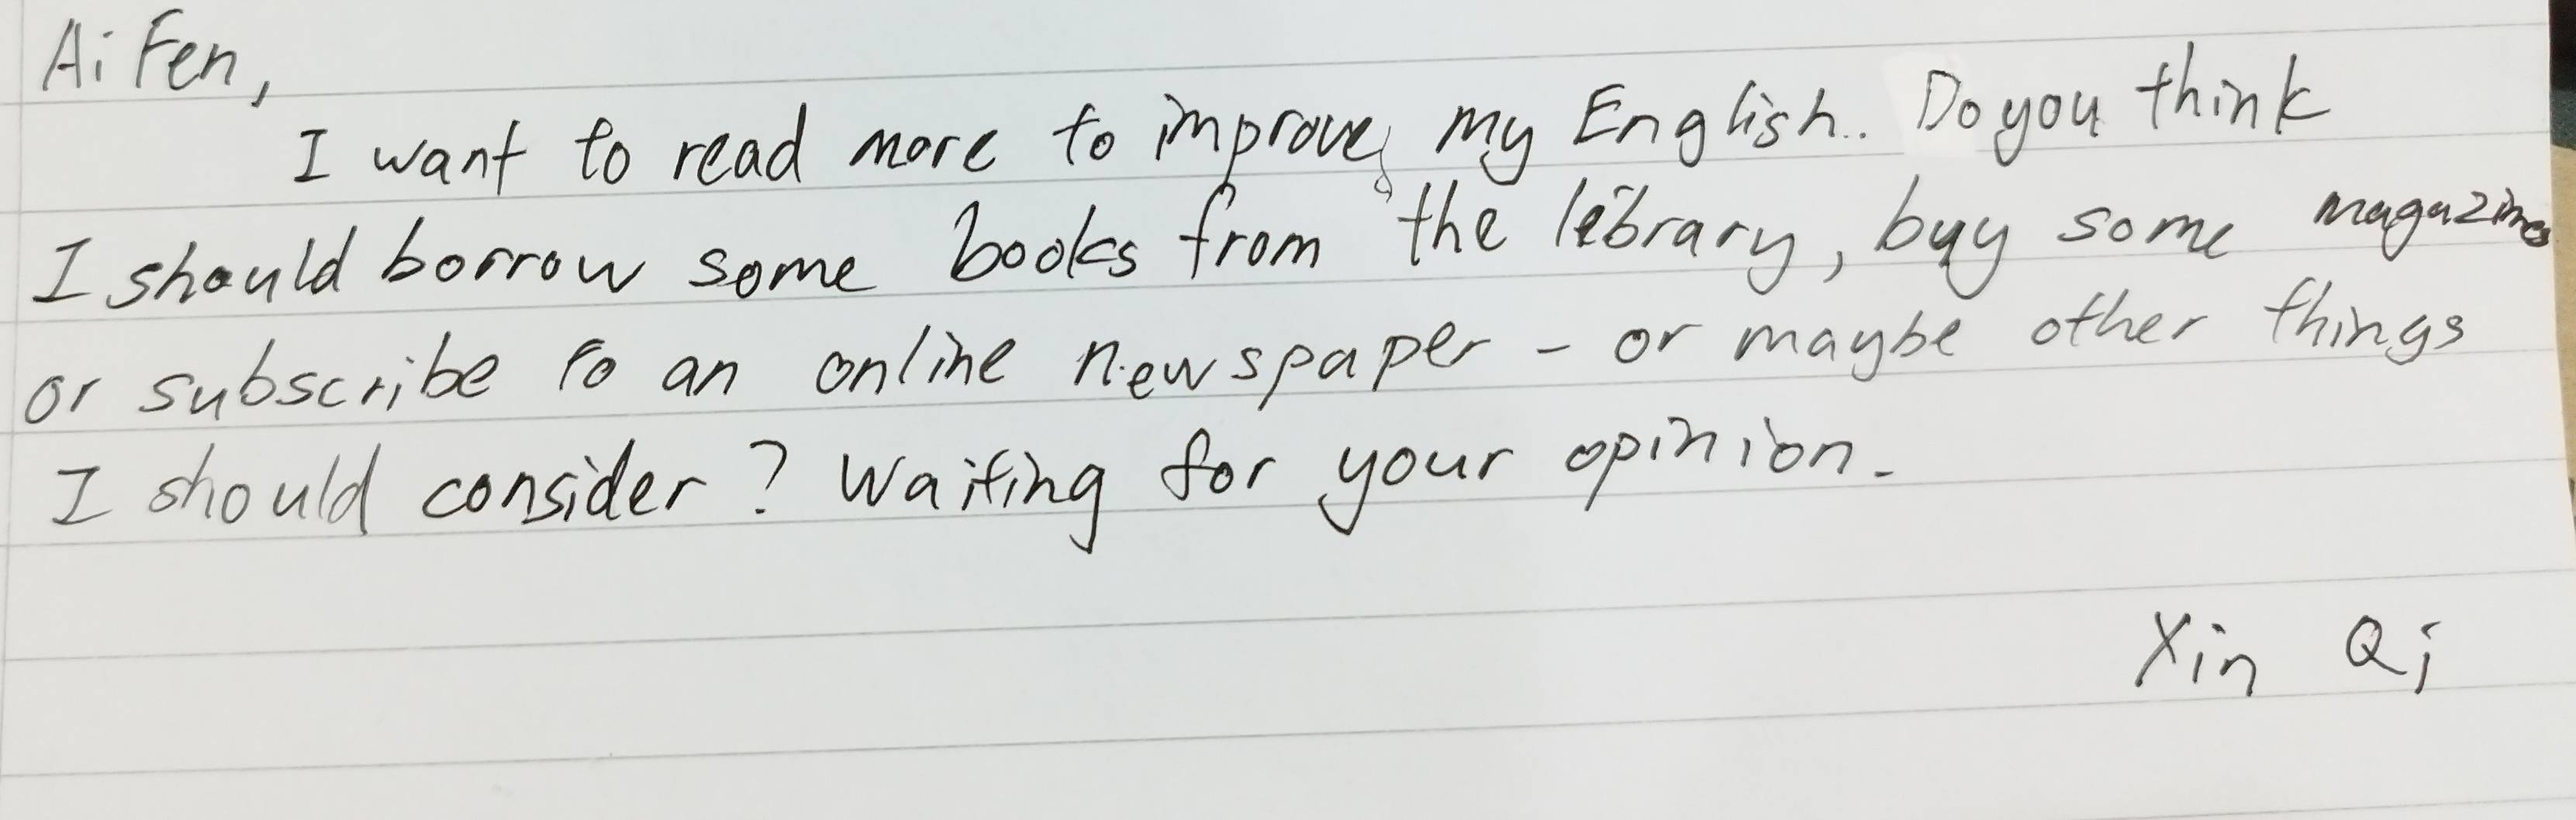 Ai Fen,
I want to read more to improve my English. Do you think
I should borrow some books from the library, buy some magazines
or subscribe to an online newspaper - or maybe other things
I should consider? Waiting for your opinion.
Xin Qi